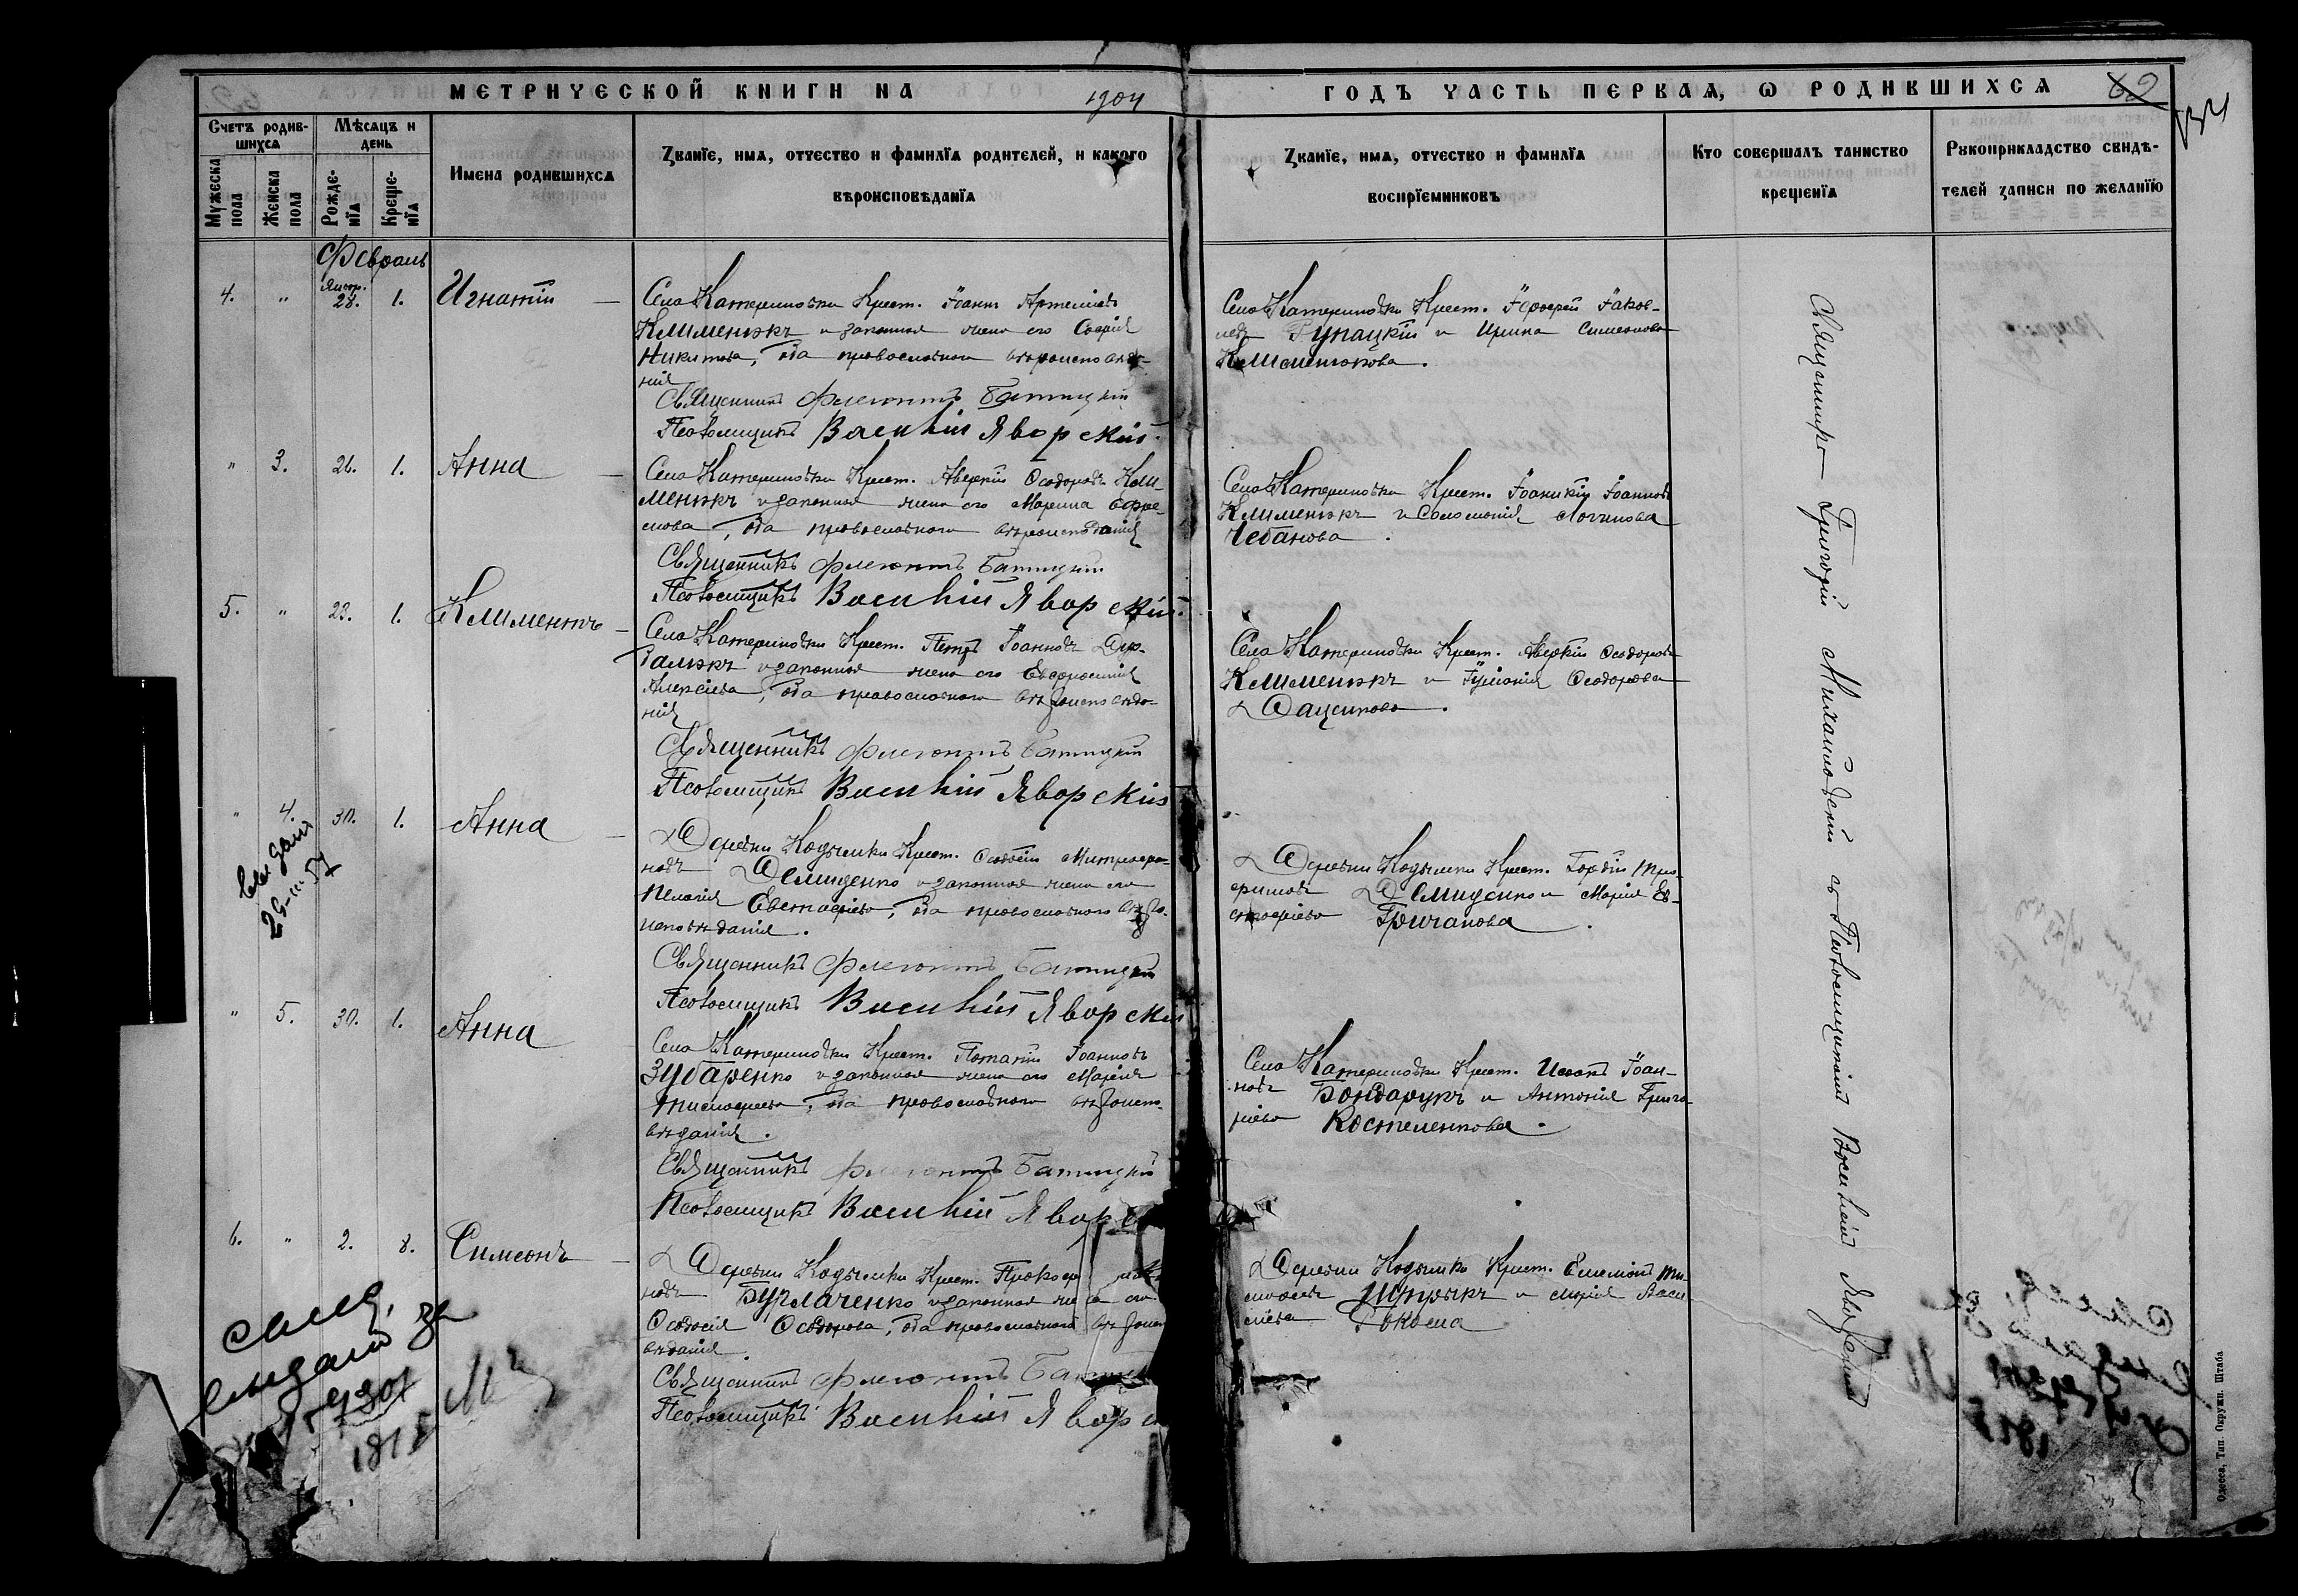 МЕТРИЧЕСКОЙ КНИГИ НА 1904
ГОДЪ ЧАСТЬ ПЕРВАЯ, Ѡ РОДИВШИХСЯ
Счетъ родив-
шихся
Мѣсяцъ и
день
Имена родившихся
Званїе, имя, отчество и фамилїя родителей, и какого
вѣроисповѣданїя
Мужеска
пола
Женска
пола
Рожде-
нїя
Креще-
нїя
Званїе, имя, отчество и фамилїя
воспрїемниковъ
Кто совершалъ таинство
крещенїя
Рукоприкладство свидѣ-
телей записи по желанїю
Февраль
4. " Янвр. 28. 1. Игнатій
Села Катериновки Крест. Іоаннъ Артеміевъ
Клименюкъ и законная жена его Софія
Никитова, оба православнаго вѣроисповѣда-
нія
Священникъ Флегонтъ Батицкій
Псаломщикъ Василій Яворскій.
Села Катериновки Крест. Іерофей Іаков-
левъ и Ирина Симеонова
Клименюкова.
" 3. 26. 1. Анна
Села Катериновки Крест. Аверкій Ѳеодоровъ Кли-
менюкъ и законная жена его Марина Ефре-
мова, оба православнаго вѣроисповѣданія
Священникъ Флегонтъ Батицкій
Псаломщикъ Василій Яворскій.
Села Катериновки Крест. Іоанникій Іоанновъ
Клименюкъ и Соломонія Логинова
Чебанова.
5. " 23. 1. Климентъ
Села Катериновки Крест. Петръ Іоанновъ
и законная жена его Евфросинія
Алексіева, оба православнаго вѣроисповѣда-
нія
Священникъ Флегонтъ Батицкій
Псаломщикъ Василій Яворскій
Села Катериновки Крест. Аверкій Ѳеодоровъ
Клименюкъ и Іуліанія Ѳеодорова
Дащенкова.
" 4. 30. 1. Анна
Деревни Кодымки Крест. Ѳеодосій Митрофа-
новъ Демиденко и законная жена его
Пелагія Евстафіева, оба православнаго вѣро-
исповѣданія.
Священникъ Флегонтъ Батицкій
Псаломщикъ Василій Яворскій
Деревни Кодымки Крест. Гордій Три-
фоновъ Демиденко и Марія Ев-
стафіева Гричанова.
" 5. 30. 1. Анна
Села Катериновки Крест. Потапій Іоанновъ
Зубаренко и законная жена его Марія
Тимофеева, оба православнаго вѣроиспо-
вѣданія.
Священникъ Флегонтъ Батицкій
Псаломщикъ Василій Яворс
Села Катериновки Крест. Исаакъ Іоан-
новъ Бондарукъ и Антонія Григо-
ріева Костеленкова.
6. " 2. 8. Симеонъ
Деревни Кодымки Крест.
новъ Бурлаченко и законная жена его
Ѳеодосія Ѳеодорова, оба православнаго вѣроиспо-
вѣданія.
Священникъ Флегонтъ Бат
Псаломщикъ Василій Яворс
Деревни Кодымки Крест. Филимонъ Ти-
мофеевъ и Марія Васи-
ліева
Священникъ Григорій Михайловскій съ Псаломщикомъ Василіемъ Яворскимъ
Одесса, Тип. Окружн. Штаба